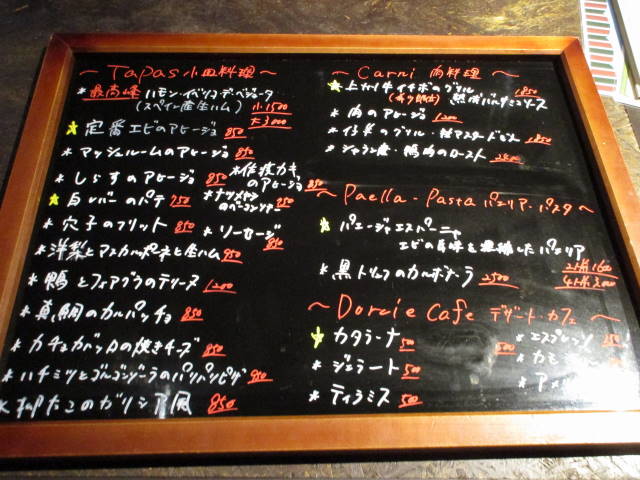 ～ Tapas 小皿料理 ～
* 最高峰 ハモン・イベリコ・デ・ベジョータ
(スペイン産生ハム) 小1500
大3000
★ 定番エビのアヒージョ 850
* マッシュルームのアヒージョ 850
* しらすのアヒージョ 850
* 広島カキ
のアヒージョ 850
★ 白レバーのパテ 750
* ナツメヤシ
のベーコン 750
* 穴子のフリット 850
* ソーセージ 850
* 洋梨とマスカルポーネと生ハム 950
* 鴨とフォアグラのテリーヌ 1200
* 真鯛のカルパッチョ 850
* カチョカバッロの焼きチーズ 850
* ハチミツとゴルゴンゾーラのパリパリピザ 950
* 柳だこのガリシア風 850
～ Carni 肉料理 ～
★ 上州牛イチボのグリル 1850
* 肉のアヒージョ 1200
* 仔羊のグリル・粒マスタード 1850
* シャラン産・鴨肉のロースト 2800
～ Paella・Pasta パエリア・パスタ ～
* パエージャエスパーニャ
エビの旨味を凝縮したパエリア
2人前1600
4人前3000
* 黒トリュフのカルボナーラ 2500
～ Dorcie Cafe デザート・カフェ ～
★ カタラーナ 500
* ジェラート 500
* ティラミス 500
* エスプレッソ
* カ
* アメ